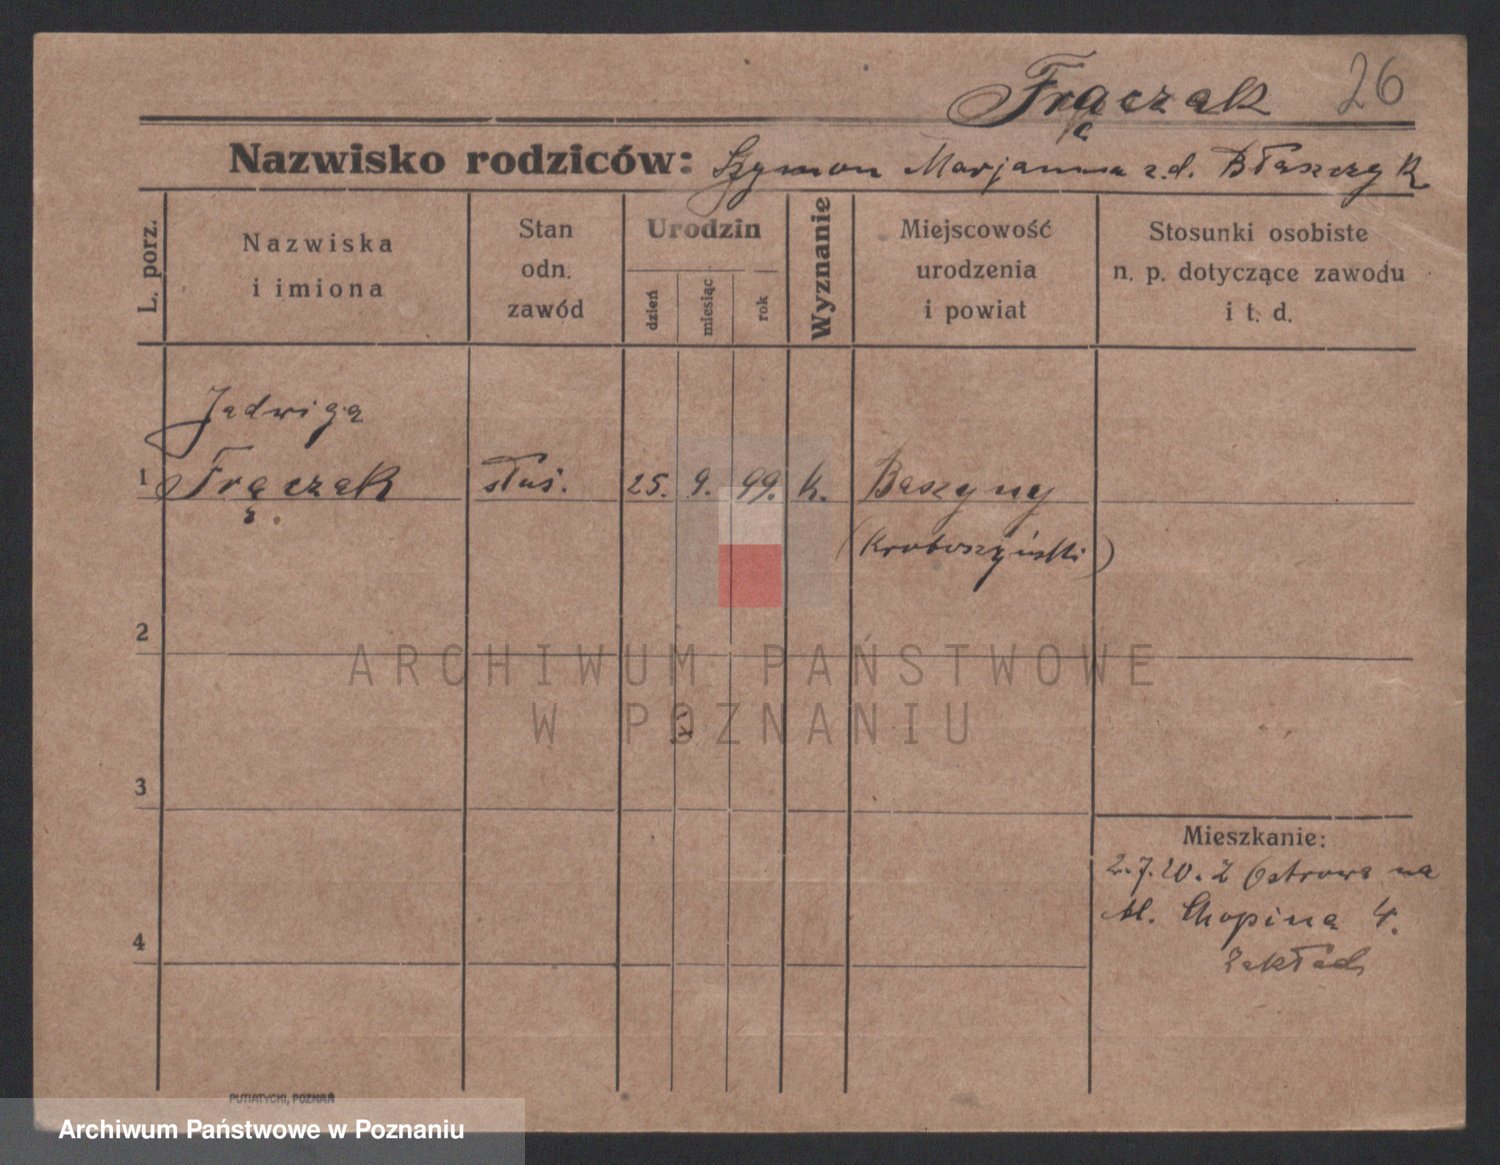 Frączak 26
Nazwisko rodziców: Szymon Marjanna z.d. Błaszczyk
L. porz.
Nazwiska
i imiona
Stan
odn.
zawód
Urodzin
dzień
miesiąc
rok
Wyznanie
Miejscowość
urodzenia
i powiat
Stosunki osobiste
n. p. dotyczące zawodu
i t. d.
Jadwiga
1 Frączak służ. 25. 9. 99. k.
2
ARCHIWUM PAŃSTWOWE
W POZNANIU
3
Mieszkanie:
2.7.20. Z Ostrowa na
Chopina 4.
zakład
4
PUTIATYCKI, POZNAŃ
Archiwum Państwowe w Poznaniu